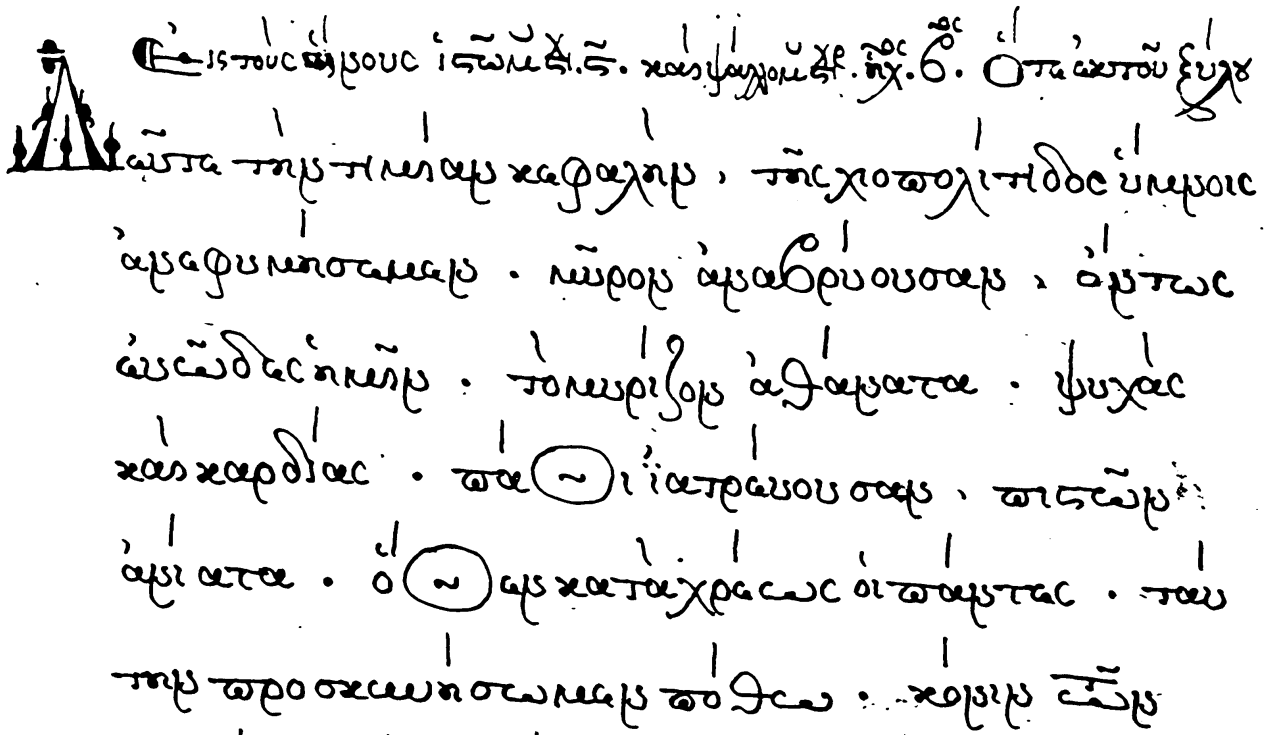 Εἰς τοὺς αἴνους ἱστῶμεν στίχ. ς. καὶ ψάλλομεν ἦχος. β. Ὅτε ἐκ τοῦ ξύλου
Δεῦτε τὴν τιμίαν κεφαλὴν, τῆς χιοπολίτιδος ὕμνοις
ἀνεφυμήσωμεν · μῦρον ἀναβρύουσαν, ὄντως
εὐῶδες ἡμῖν · τὸ μυρίζον ἀθάνατα · ψυχὰς
καὶ καρδίας · πα ~ ι ἰατρεύουσαν, πιστῶν
ἀνίατα · ὃ ~ εν κατὰ χρέως οἱ πάντες · ταύ
την προσκυνήσωμεν πόθω · κόνιν